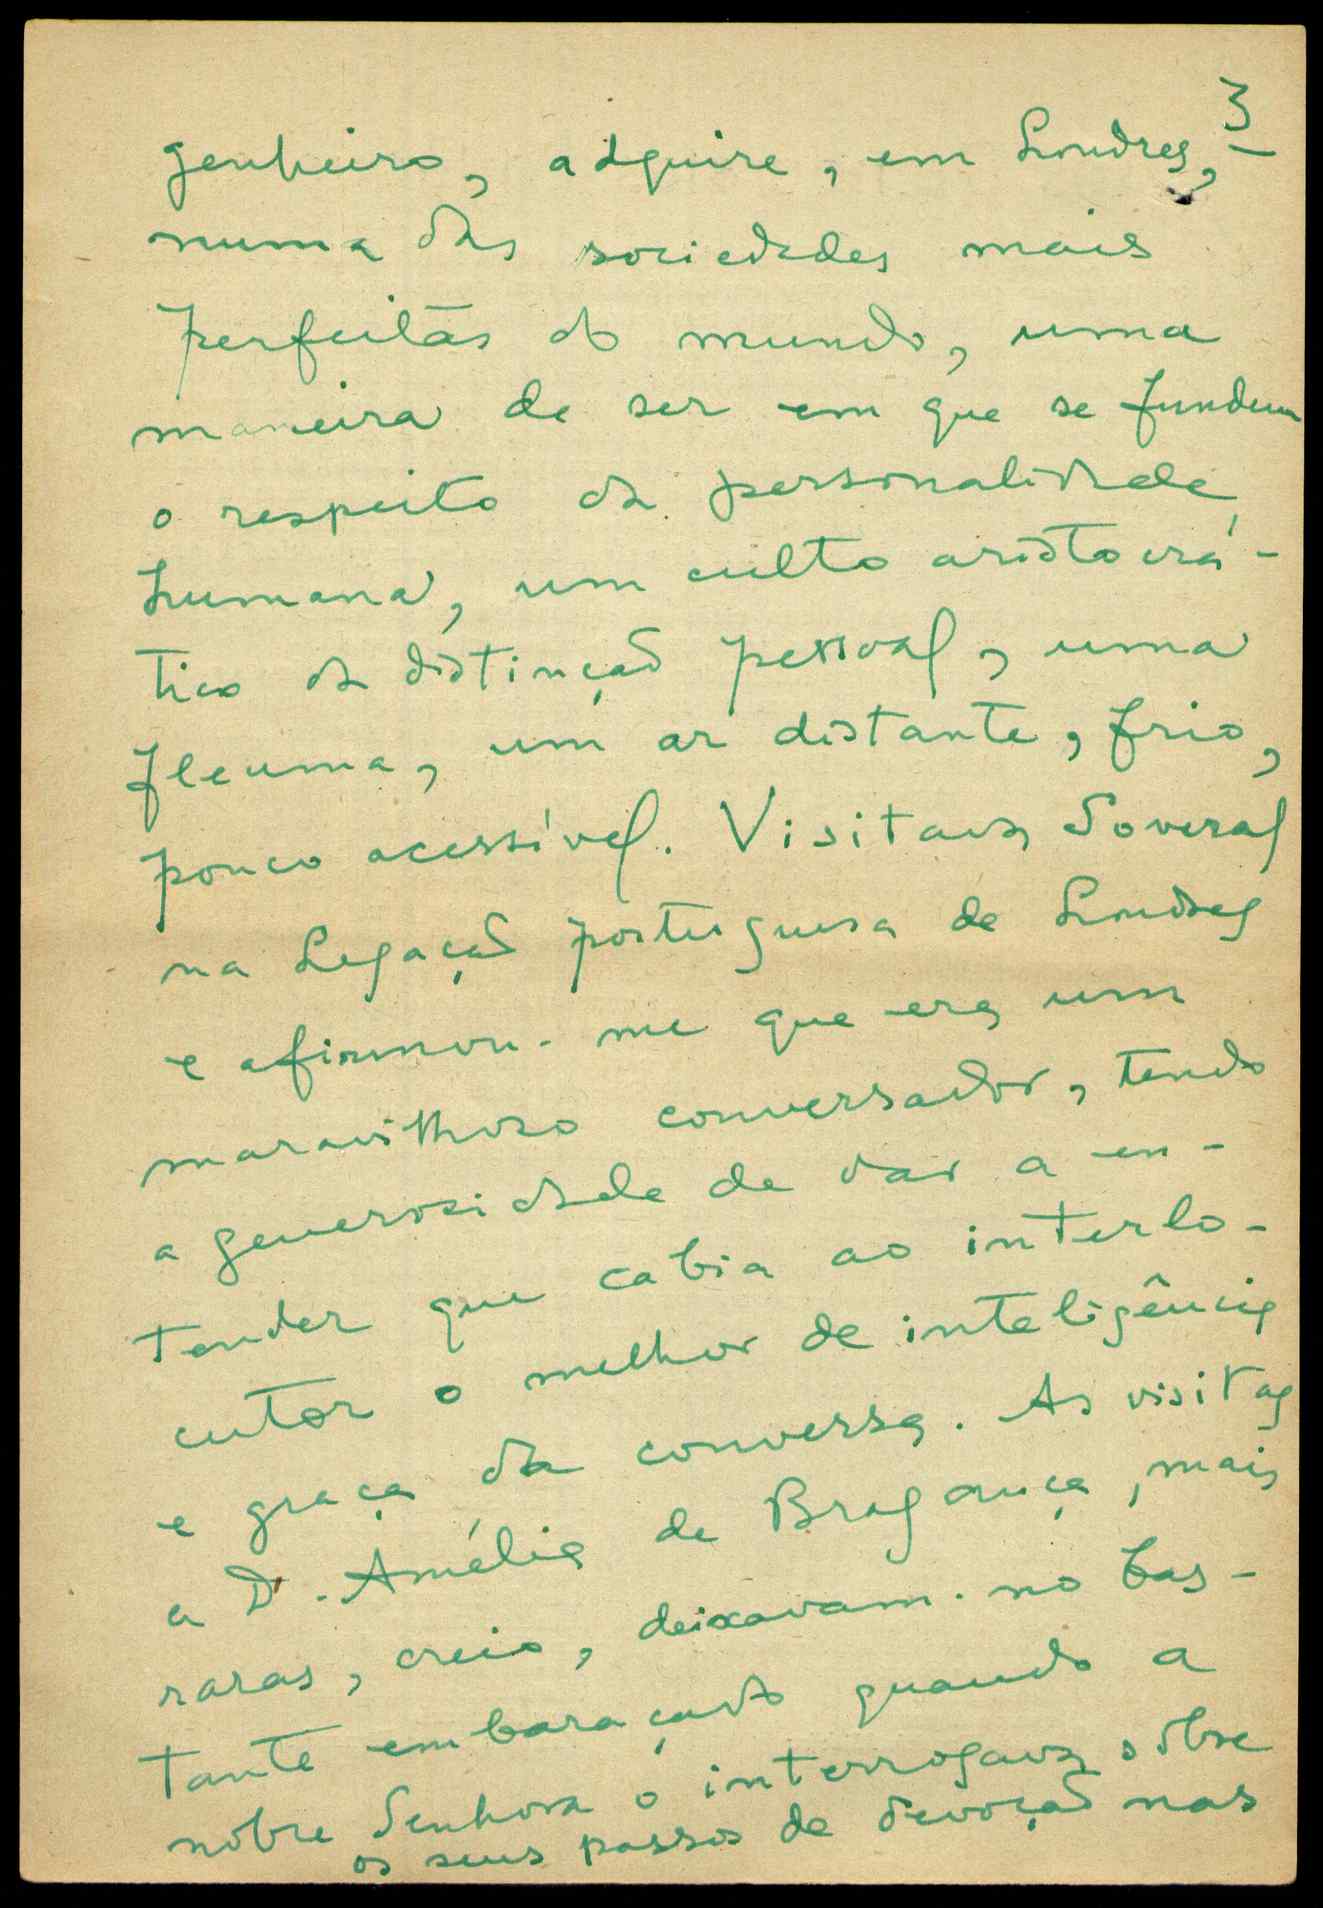 3
genheiro, adquire, em Londres,
numa das sociedades mais
perfeitas do mundo, uma
maneira de ser em que se fundem
o respeito da personalidade
humana, um culto aristocrá-
tico da distinção pessoal, uma
fleuma, um ar distante, frio,
pouco acessível. Visitava Soveral
na Legação portuguesa de Londres
e afirmou-me que era um
maravilhoso conversador, tendo
a generosidade de dar a en-
tender que cabia ao interlo-
cutor o melhor de inteligência
e graça da conversa. As visitas
a D. Amélia de Bragança, mais
raras, creio, deixavam-no bas-
tante embaraçado quando a
nobre Senhora o interrogava sôbre
os seus passos de devoção nas